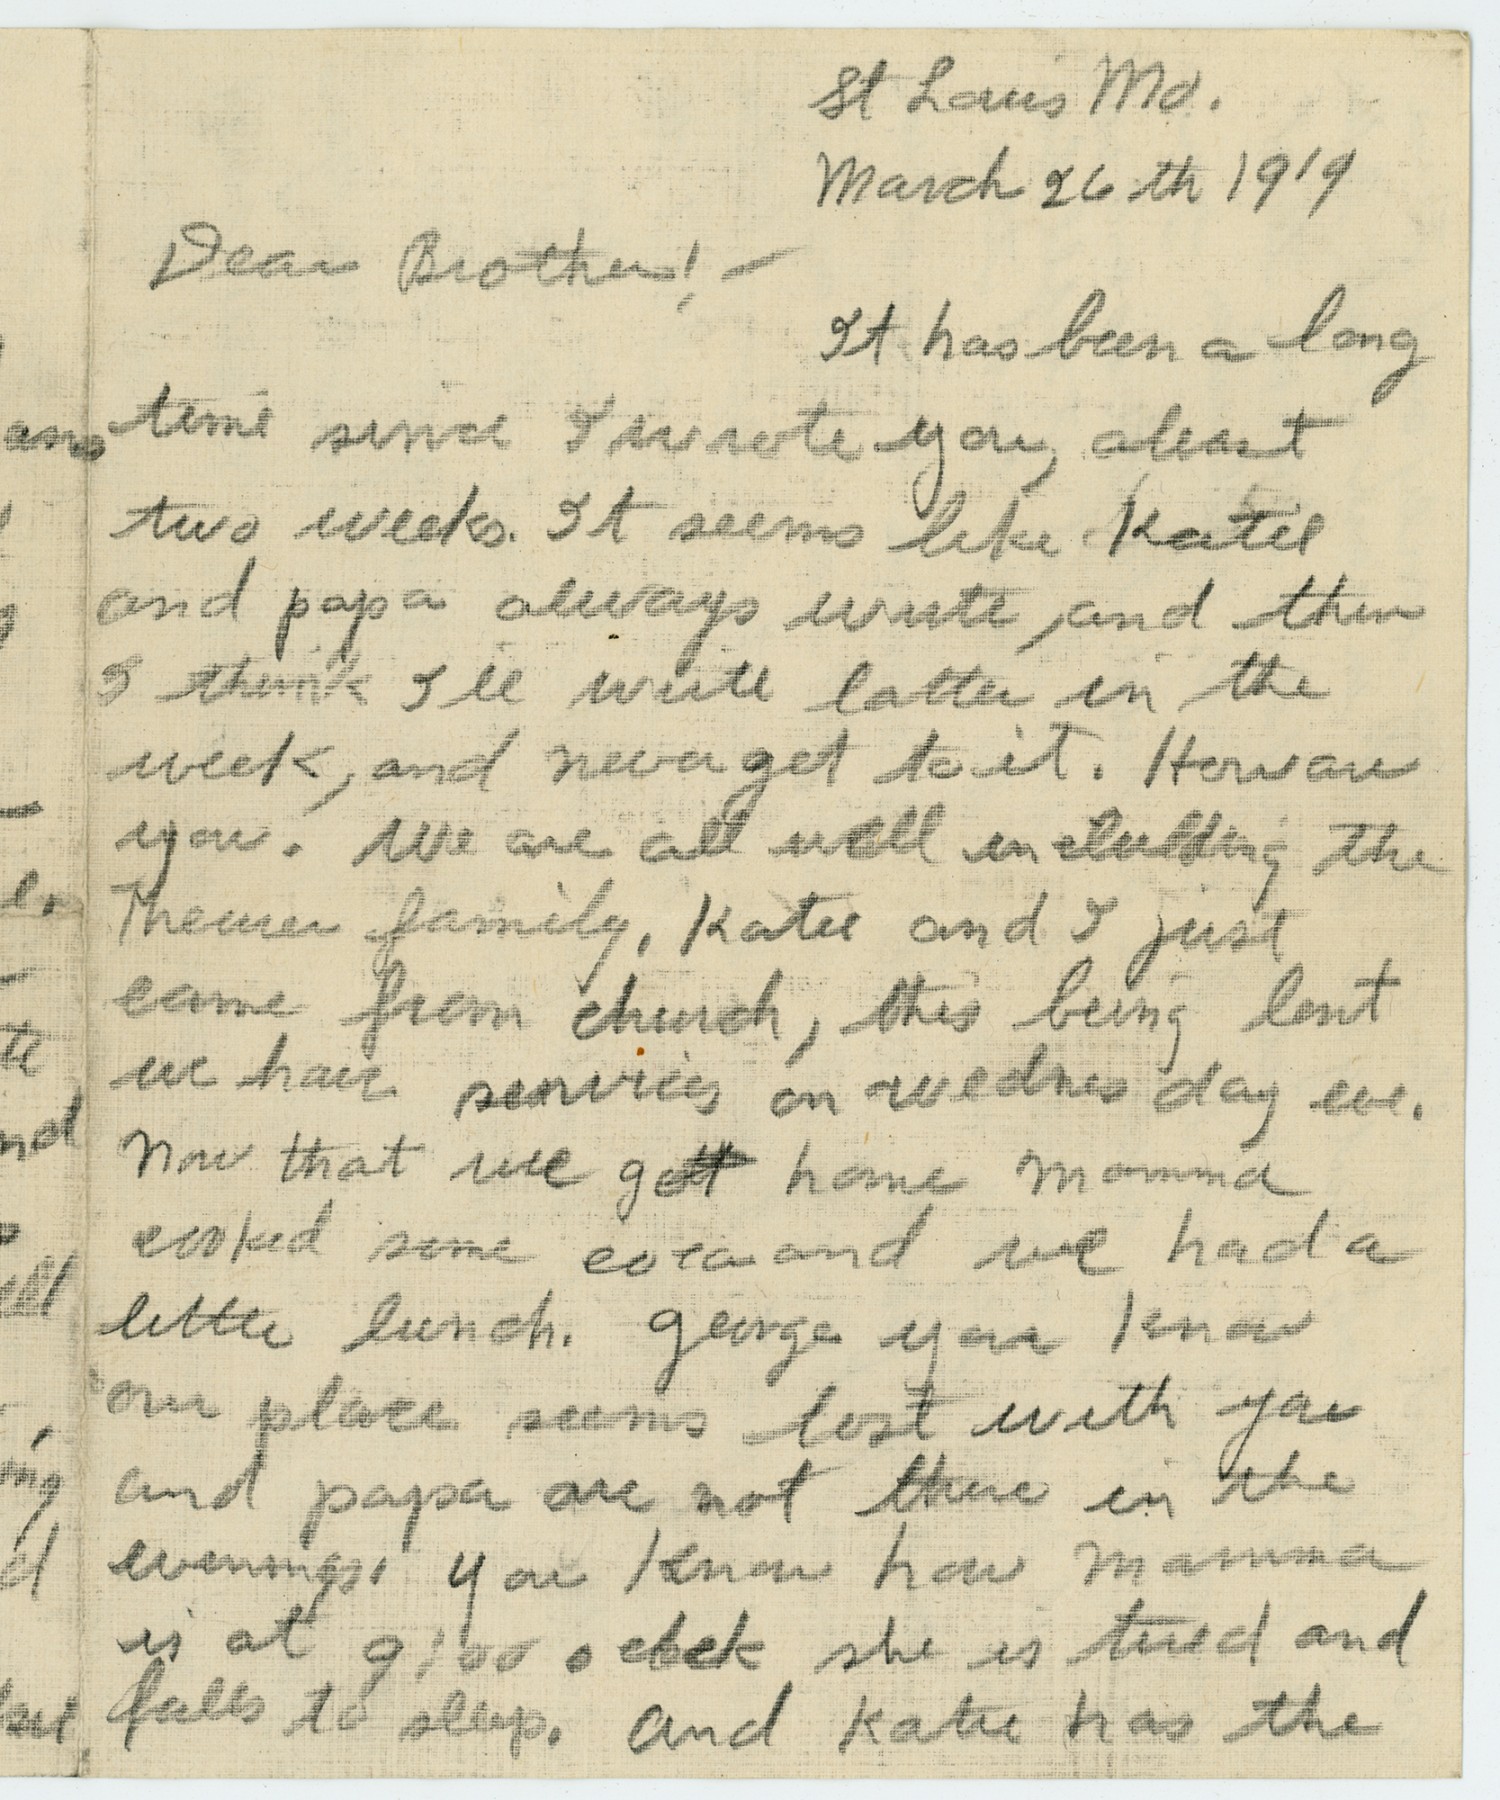 St Louis Mo.
March 26th 1919
Dear Brother! —
It has been a long
time since I wrote you, about
two weeks. It seems like Katie
and papa always write, and then
I think I ll write latter in the
week, and never get to it. How are
you. We are all well including the
family. Katie and I just
came from church, this being lent
we have services on wednes day eve.
Now that we got home Momma
cooked some coca and we had a
little lunch. George you know
our place seems lost with you
and papa are not there in the
evenings. You know how Mamma
is at 9:00 o clock she is tired and
falls to sleep. And Katie has the